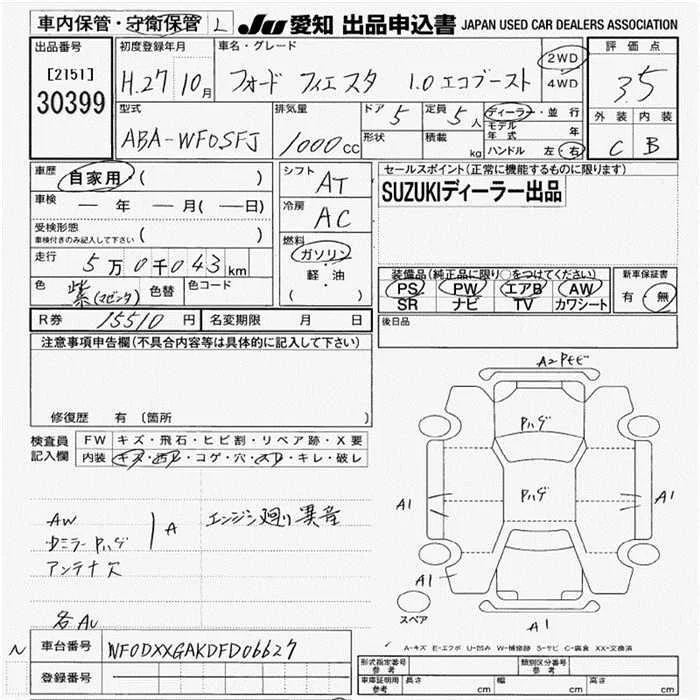 車内保管・守衛保管 L JU 愛知 出品申込書 JAPAN USED CAR DEALERS ASSOCIATION
出品番号 初度登録年月 車名・グレード 評価点
[2151] 30399 H.27 10月 フォード フィエスタ 1.0 エコブースト 2WD 4WD 3.5
型式 排気量 ドア 5 定員 5人 ディーラー・並行 外装 内装
ABA-WF0SFJ 1000cc 形状 積載 kg モデル年式 年 C B
ハンドル 左・右
車歴 自家用・( ) シフト AT セールスポイント(正常に機能するものに限ります)
SUZUKIディーラー出品
車検 ー 年 ー 月(ー日) 冷房 AC
受検形態 車検付きのみ記入して下さい ( ) 燃料 ガソリン・軽・油 ( )
走行 5万0千043km 装備品(純正品に限り○をつけてください) 新車保証書
色 紫(マゼンタ) 色替 色コード PS PW エアB AW 有・無
SR ナビ TV カワシート
R券 15510円 名変期限 月 日 後日品
注意事項申告欄(不具合内容等は具体的に記入して下さい)
修復歴 有 〔箇所
検査員記入欄 FW キズ・飛石・ヒビ割・リペア跡・X要
内装 キズ・・コゲ・穴・・キレ・破レ
A2Pモビ
Pハゲ
Pハゲ
A1 A1
AW エンジン廻り異音
ミラーPハゲ A
アンテナ欠
A1
スペア
A1
各AU
A-キズ E-エクボ U-凹み W-補修跡 S-サビ C-腐食 XX-交換済
N 車台番号 WF0DXXGAKDFD06627
登録番号
形式指定番号 参考 類別区分番号 参考
車庫証明用 参考 長さ cm 幅 cm 高さ cm